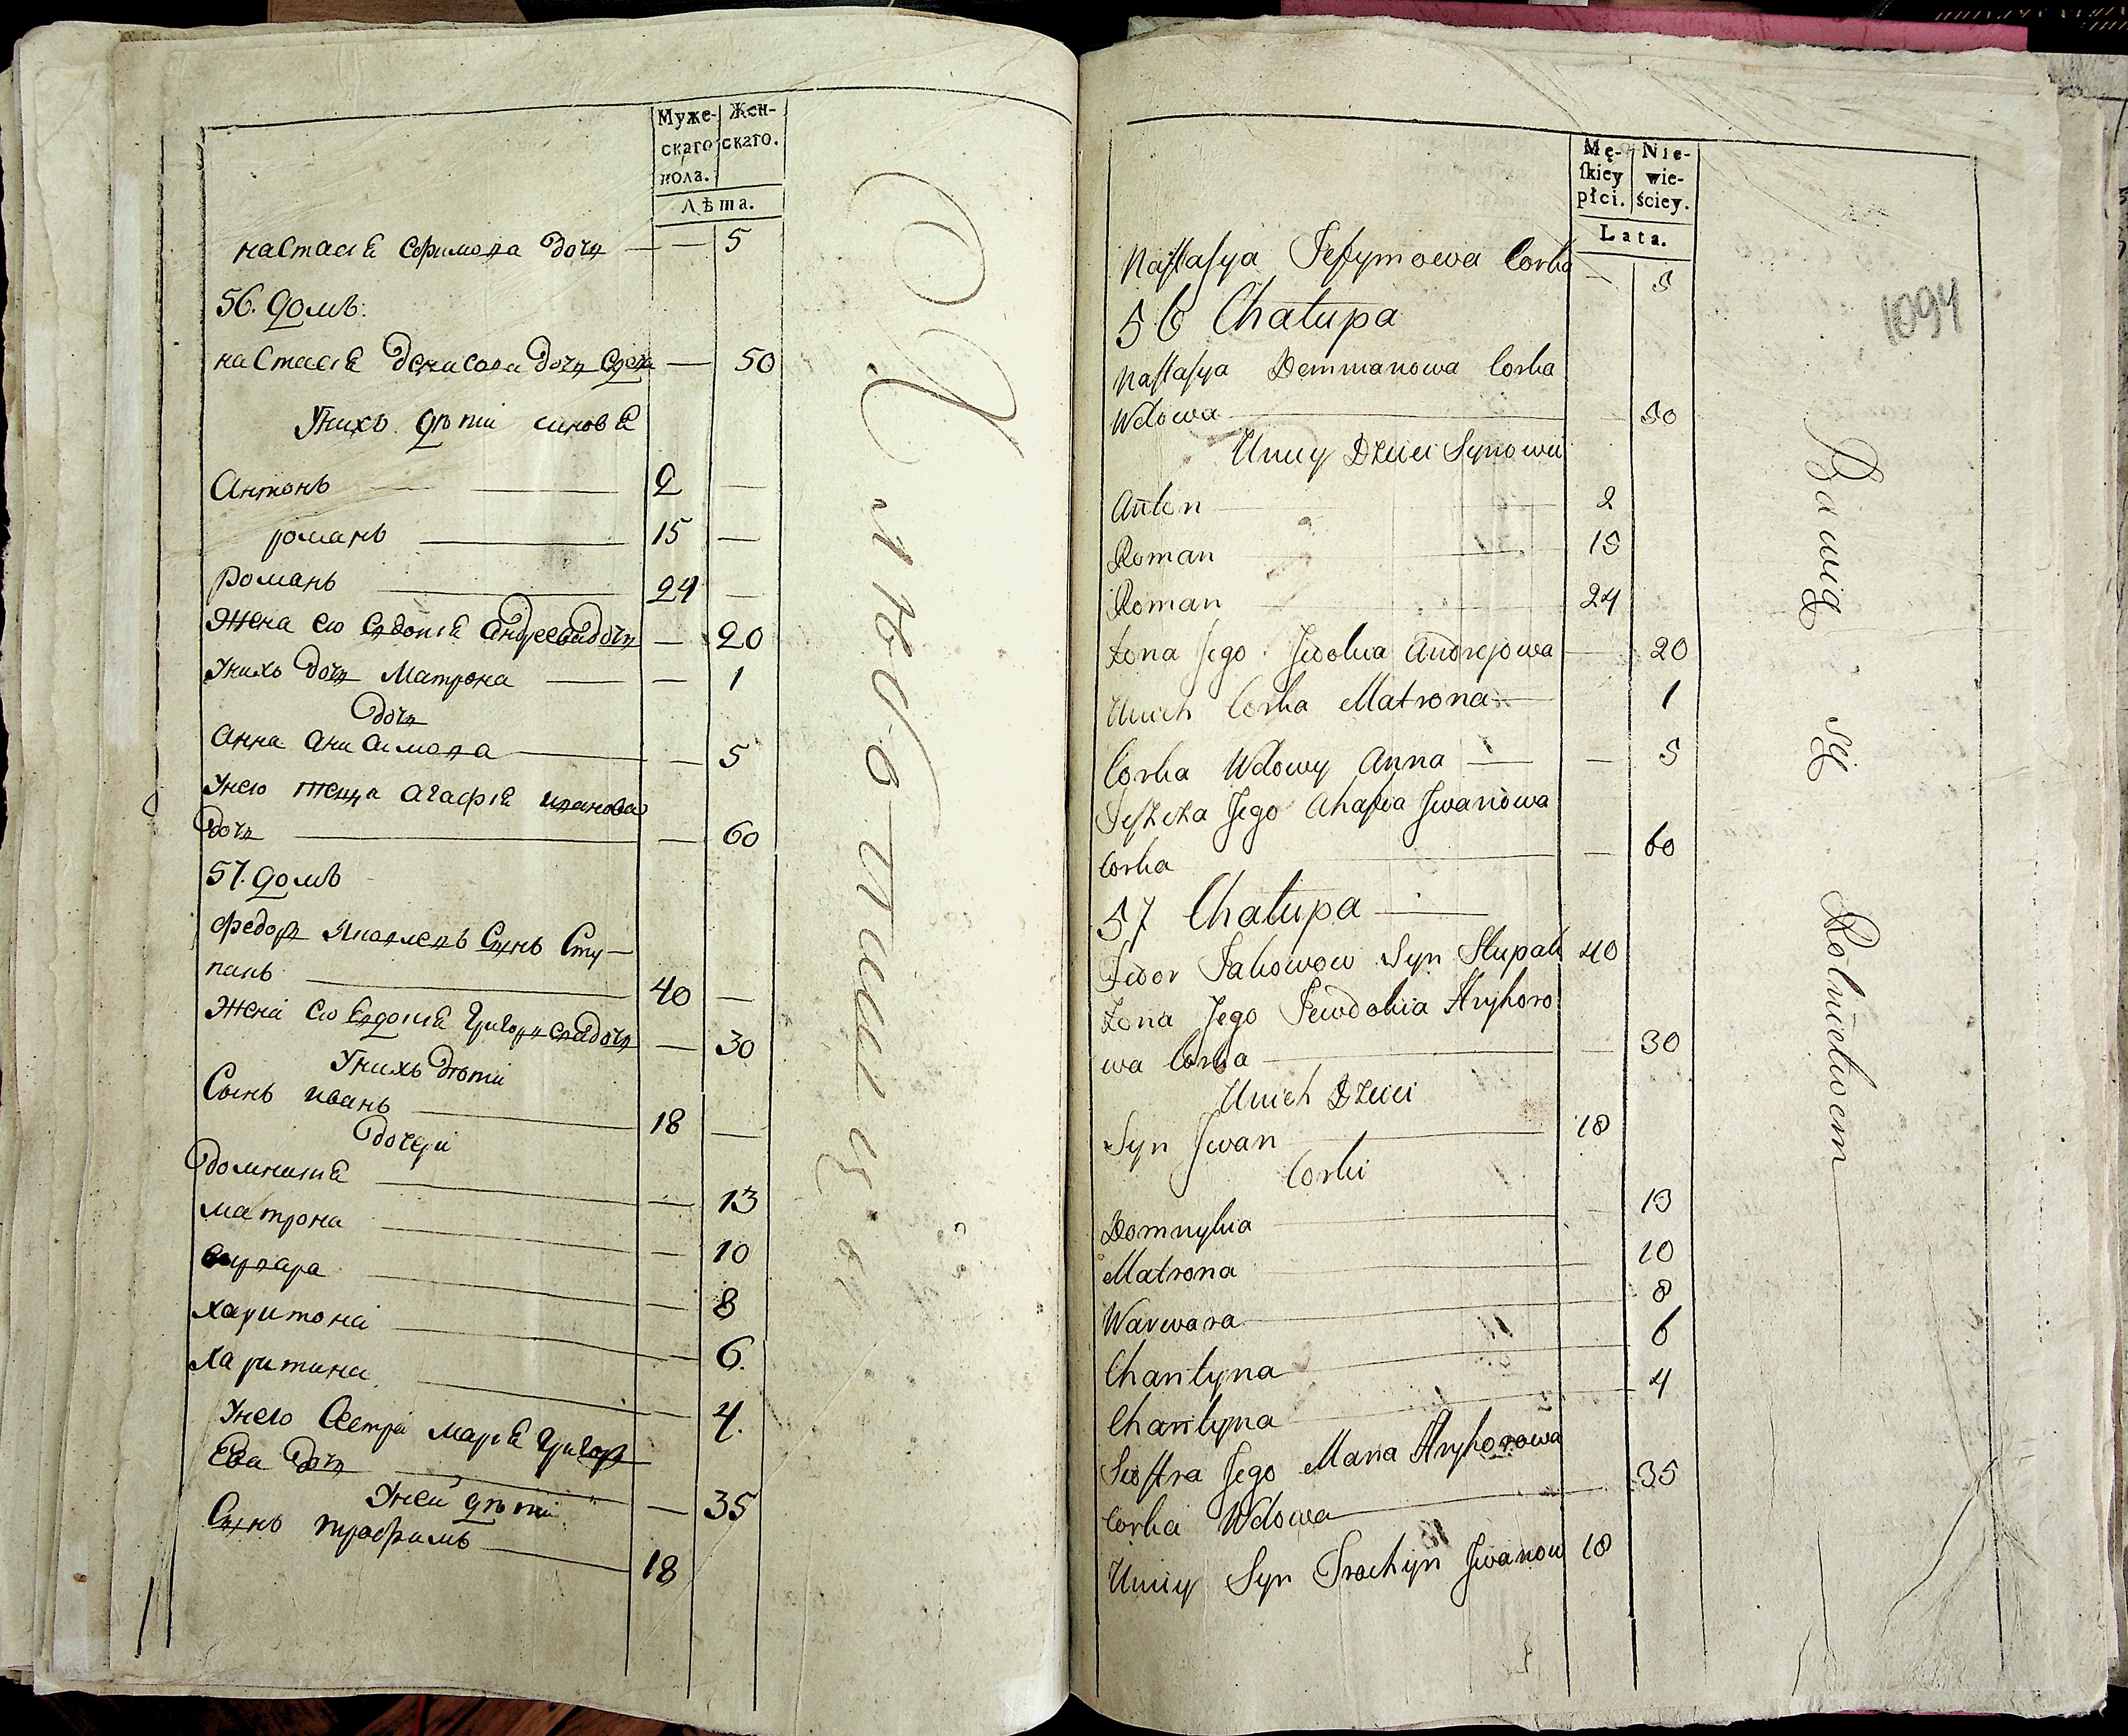 Муже-
скаго
пола.
Жен-
скаго.
Лѣта.
настасія ефимова дочь — 5
56. домъ.
настасія денисова дочь вдова — 50
У нихъ дѣти синовя
Антонъ — 2 —
романъ — 15 —
Романъ — 24 —
Жена его евдокія андреева дочь — 20
У нихъ дочь Матрона — — 1
дочь
анна анисимова — — 5
У него теща агафія иванова
дочь — — 60
57. домъ
Федоръ Яковлевъ Сынъ Сту-
пакъ — 40 —
Жена его Евдокія Григорьева дочь — 30
У нихъ дѣти
Сынъ иванъ — 18 —
дочери
домникія — — 13
матрона — — 10
варвара — — 8
харитона — — 6.
харитина — — 4.
У него Сестра Марія Григор
Ева дочь — — 35
У ней дѣти
Сынъ трофимъ — 18
Mę-
ſkiey
płci.
Nie-
wie-
ściey.
Lata.
1094
Naſtaſya Jefymowa Corka — 5
56 Chałupa
Naſtaſya Demmianowa Corka
Wdowa — 50
Uniey Dzieci Synowie
Anton — 2
Roman — 15
Roman — 24
Żona Jego Jewdokia Andrejowa — 20
Unich Corka Matrona — 1
Corka Wdowy Anna — — 5
Teſzczka Jego Ahafia Jwanowa
Corka — — 60
57 Chałupa —
Fedor Jakowow Syn Stupak 40
Żona Jego Jewdokia Hryhoro
wa Corka — — 30
Unich Dzieci
Syn Jwan — 18
Corki
Domnykia — — 13
Matrona — 10
Warwara — 8
Charityna — 6
Charityna — 4
Sioſtra Jego Maria Hryhorowa
Corka Wdowa — 35
Uniey Syn Trochym Jwanow 18
Bawią się Rolnictwem —